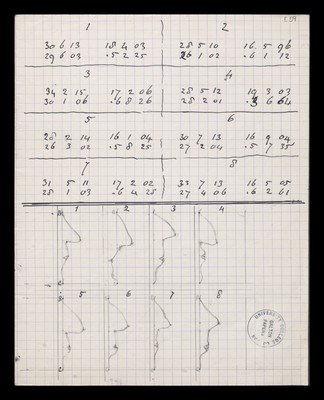 1 2
30 6 13 18 4 03 28 5 10 16. 5 96
29 6 03 .5 2 25 26 1 02 .6 1 12
3 4
34 2 15 17 2 06 28 5 12 19 3 03
30 1 06 .6 8 26 28 2 01 .3 6 64
5 6
28 2 14 16 1 04 30 7 13 16 9 04
26 3 02 .5 8 25 27 2 04 .5 7 35
7 8
31 5 11 17 2 02 32 7 13 16 5 05
28 1 03 .6 4 28 27 4 06 .6 2 61
1 2 3 4
5 6 7 8
UNIVERSITY COLLEGE
GALTON
PAPERS